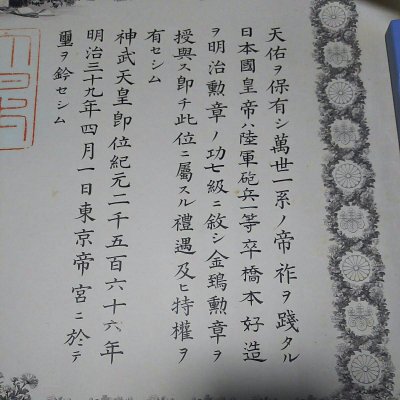 天佑ヲ保有シ萬世一系ノ帝祚ヲ踐タル
日本國皇帝ハ陸軍砲兵一等卒橋本好造
ヲ明治勲章ノ功七級ニ敘シ金鵄勲章ヲ
授與ス即チ此位ニ屬スル禮遇及ヒ特權ヲ
有セシム
神武天皇即位紀元二千五百六十六年
明治三十九年四月一日東京帝宮ニ於テ
璽ヲ鈐セシム